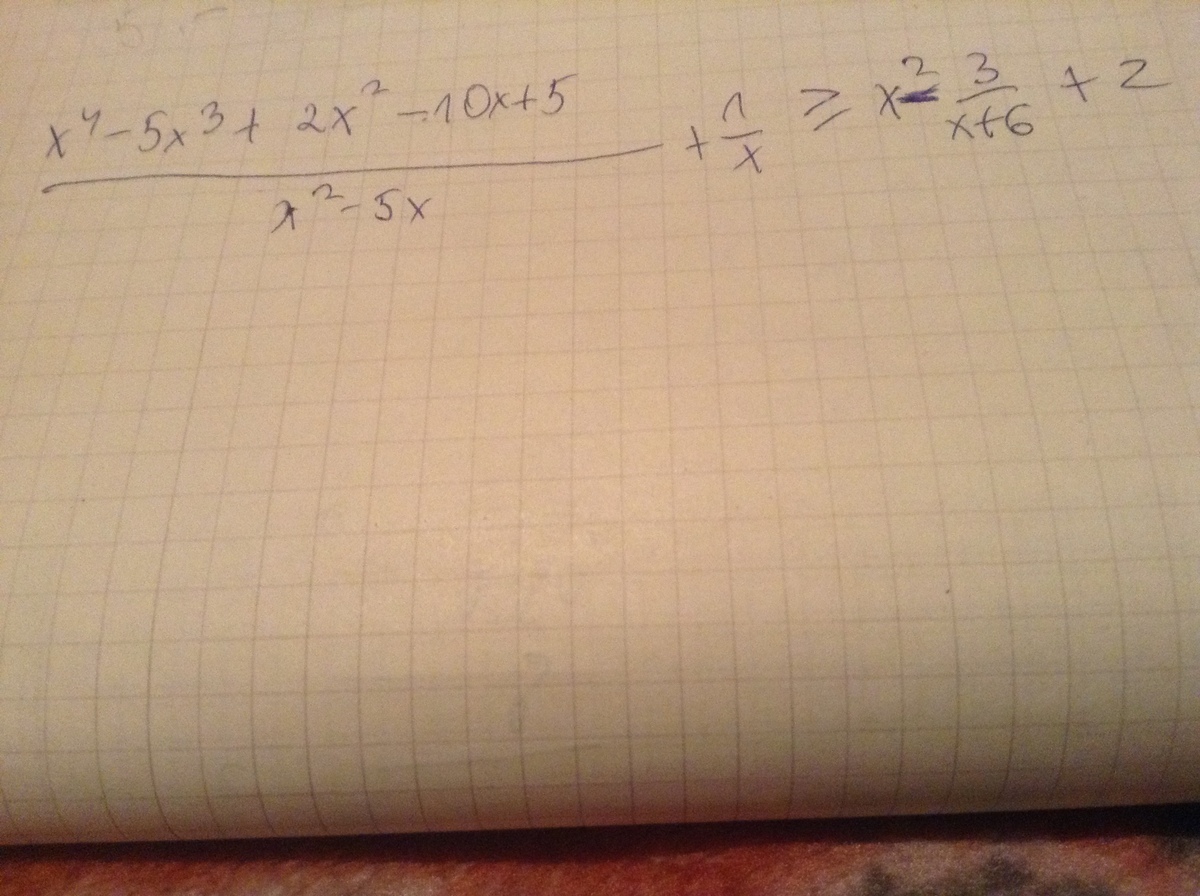 x⁴ - 5x³ + 2x² - 10x + 5
x² - 5x
+ 1/x ≥ x² - 3/(x+6) + 2